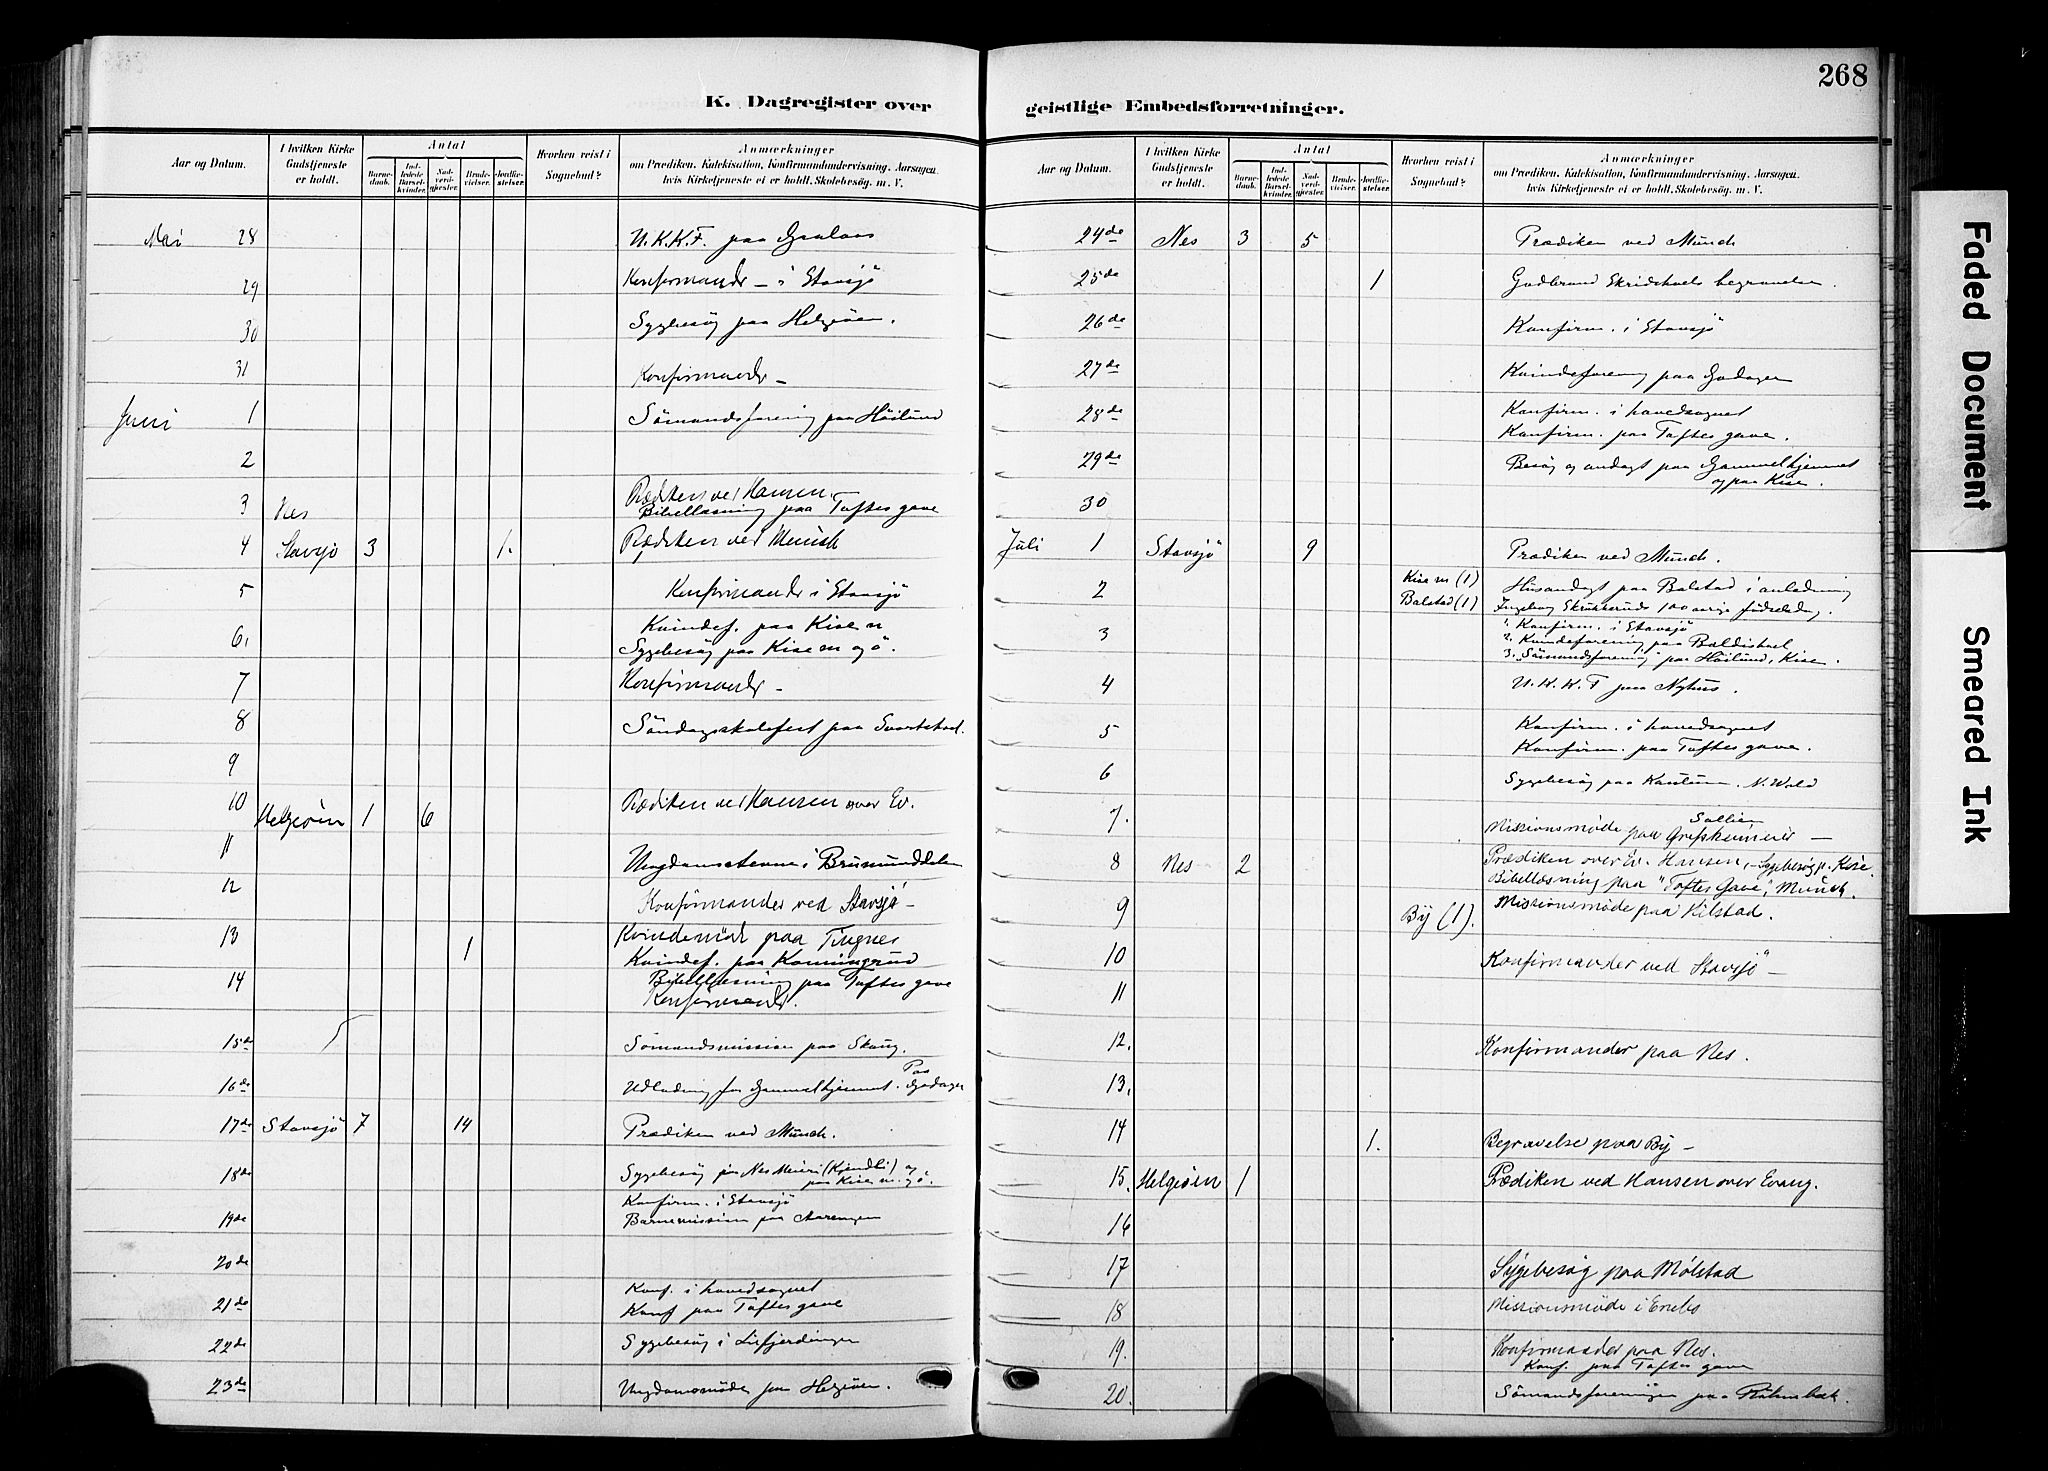 268
K. Dagregister over
geistlige Embedsforretninger.
Aar og Datum.
I hvilken Kirke Gudstjeneste er holdt.
Antal
Barnedaab.
Indledede Barselkvinder.
Nadverdgjester.
Brudevielser.
Jordfæstelser.
Hvorhen reist i Sognebud?
Anmærkninger
om Prædiken, Katekisation, Konfirmandundervisning, Aarsagen,
hvis Kirketjeneste ei er holdt. Skolebesøg. m. V.
Mai 28 U.K.K.F. paa
29 Konfirmander – i Stavsjö
30 Sygebesøg paa Helgeöen.
31 Konfirmander –
Juni 1 Sömandsforening paa Höilund
2
3 Nes Prædiken ved Hansen.
Bibellæsning paa Toftes gave
4 Stavsjö 3 1. Prædiken ved Munch
5 Konfirmander i Stavsjö
6. Kvindef. paa Kise n
Sygebesøg paa Kise n og ö.
7 Konfirmander –
8 Söndagsskolefest paa Svartstad.
9
10 Helgeöen 1 6 Prædiken ved Hansen over Ev.
11 Ungdomsstevne i Brumunddalen
12 Konfirmander ved Stavsjö –
13 1 Kvindemöde paa Tingnes
Kvindef. paa
14 Bibellæsning paa Toftes gave
Konfirmander.
15de Sömandsmission paa Skaug.
16de Udlodning for Gammelhjemmet. Paa Godager
17de Stavsjö 7 14 Prædiken ved Munch.
18de Sygebesøg paa Nes Meieri (Kjendli) og
paa Kise n. og ö.
Konfirm. i Stavsjö
19de Barnemission paa
20de
Konf. i hovedsognet
21de Konf paa Toftes gave
22de Sygebesøg i
23de Ungdomsmöde paa Helgeöen.
Aar og Datum.
I hvilken Kirke Gudstjeneste er holdt.
Antal
Barnedaab.
Indledede Barselkvinder.
Nadverdgjester.
Brudevielser.
Jordfæstelser.
Hvorhen reist i Sognebud?
Anmærkninger
om Prædiken, Katekisation, Konfirmandundervisning, Aarsagen,
hvis Kirketjeneste ei er holdt. Skolebesøg. m. V.
24de Nes 3 5 Prædiken ved Munch
25de 1 Gudbrand Skridshols begravelse.
26de Konfirm. i Stavsjö
27de Kvindeforening paa Godager
28de Konfirm. i hovedsognet
Konfirm. paa Toftes gave.
29de Besøg og andagt paa Gammelhjemmet
og paa Kise.
30
Juli 1 Stavsjö 9 Prædiken ved Munch.
2 Kise n (1) Husandagt paa Balstad i anledning
Balstad (1) Ingeborg Skrukkeruds 100 aarige födselsdag.
3 1. Konfirm. i Stavsjö
2. Kvindeforening paa Baldishol
3. "Sömandsforening" paa Höilund, Kise.
4 U.K.K.F paa Nyhus.
5 Konfirm. i hovedsognet
Konfirm. paa Toftes gave.
6 Sygebesøg paa
7. Missionsmøde paa
8 Nes 2 Prædiken over Ev. Hansen, – Sygebesøg p. Kise.
Bibellæsning paa "Toftes Gave", Munch.
9 By (1). Missionsmøde paa Kilstad.
10 Konfirmander ved Stavsjö –
11
12. Konfirmander paa Nes.
13.
14 1. Begravelse paa By –
15. Helgeöen 1 Prædiken ved Hansen over Evang.
16
17 Sygebesøg paa Mølstad
18 Missionsmøde i
19. Konfirmander paa Nes.
Konf. paa Toftes gave
20. Sömandsforeningen paa
Faded Document
Smeared Ink